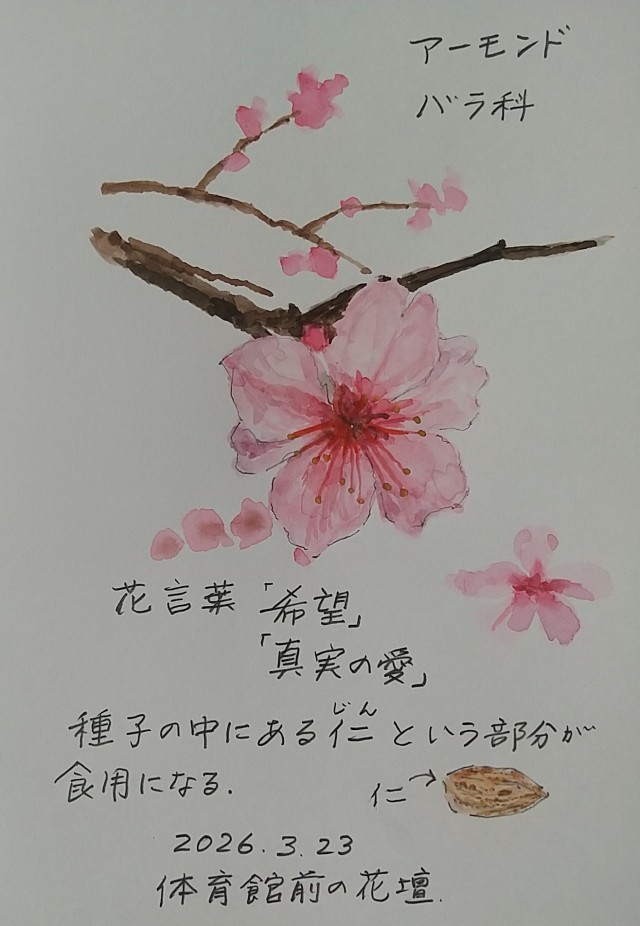 アーモンド
バラ科
花言葉「希望」
「真実の愛」
じん
種子の中にある仁という部分が
食用になる.
仁→
2026.3.23
体育館前の花壇.